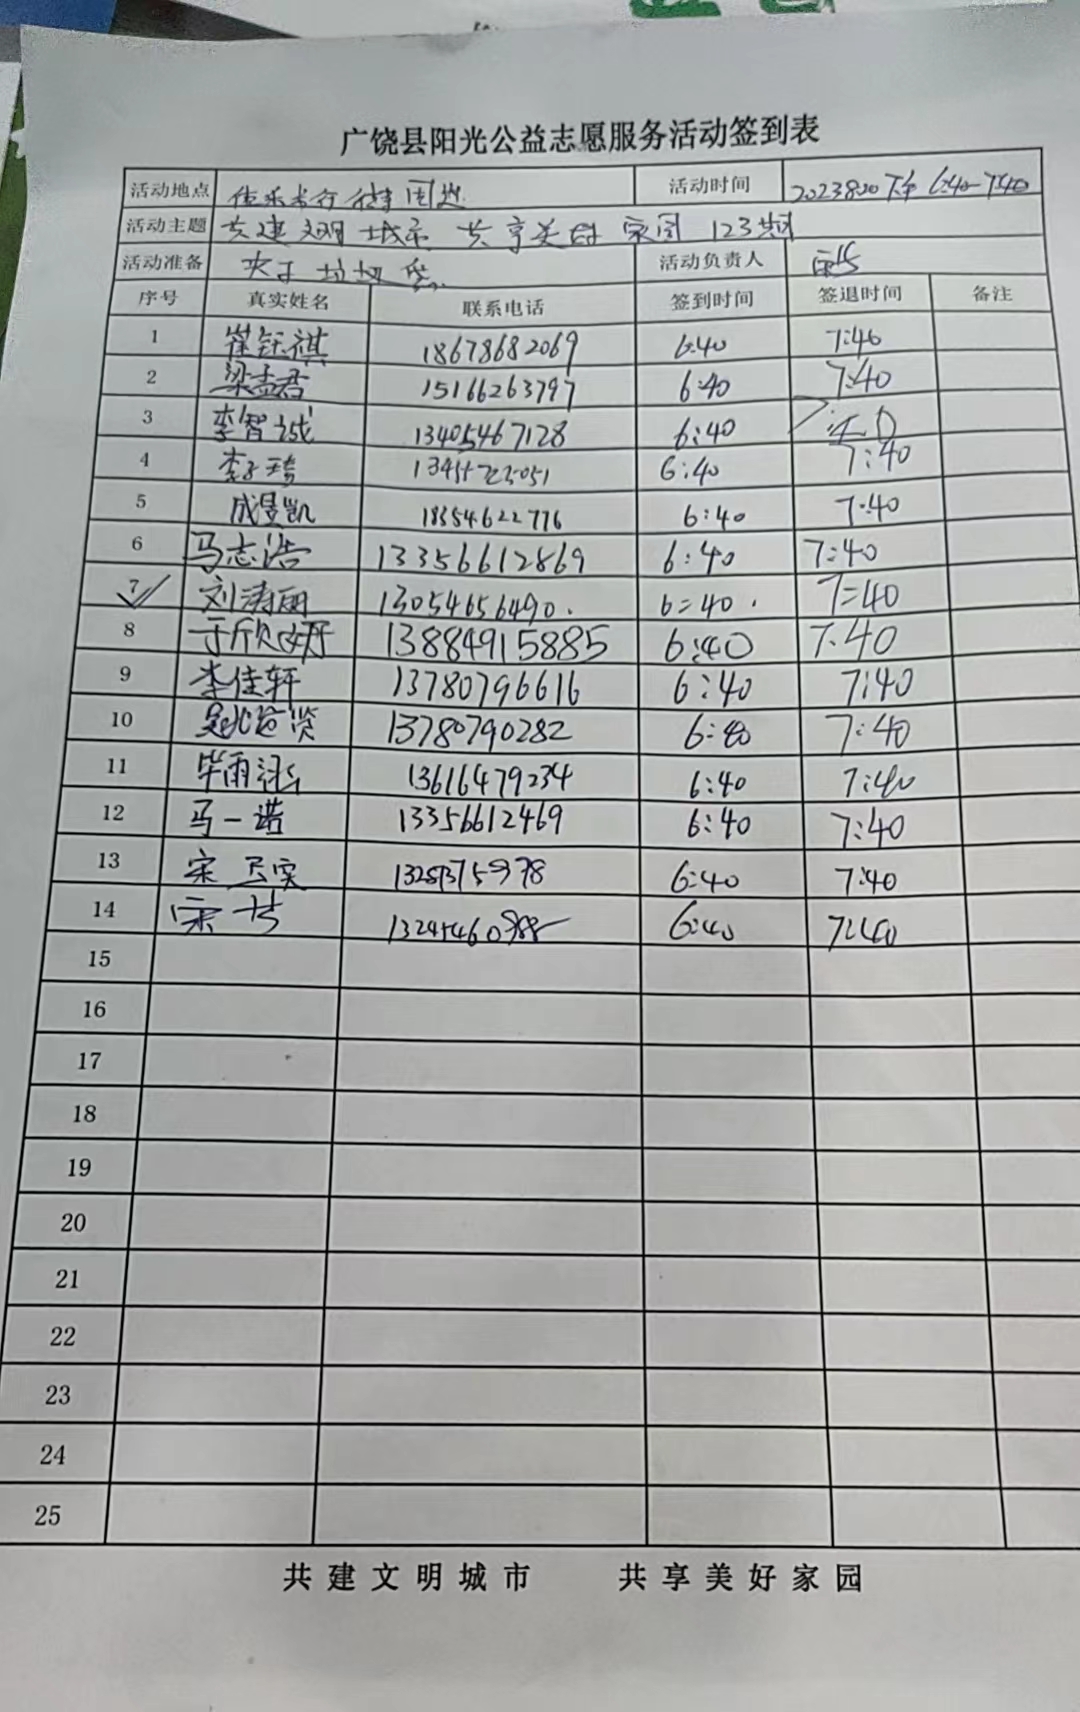 广饶县阳光公益志愿服务活动签到表
活动地点 佳乐步行街周边 活动时间 2023820 下午 6:40-7:40
活动主题 共建文明城市 共享美好家园 123期
活动准备 夹子 垃圾袋 活动负责人
序号 真实姓名 联系电话 签到时间 签退时间 备注
1 崔钰祺 18678682069 6:40 7:40
2 梁孟君 15166263797 6:40 7:40
3 李智诚 13405467128 6:40 7:40
4 李子琦 6:40 7:40
5 成昱凯 18354622776 6:40 7:40
6 马志浩 13356612869 6:40 7:40
7 刘涛丽 13054656490. 6=40. 7=40
8 于欣妍 13884915885 6:40 7.40
9 李佳轩 13780796616 6:40 7:40
10 13780790282 6:40 7:40
11 13616479234 6:40 7:40
12 马一诺 13356612469 6:40 7:40
13 宋 6:40 7:40
14 宋 6:40 7:40
15
16
17
18
19
20
21
22
23
24
25
共建文明城市 共享美好家园